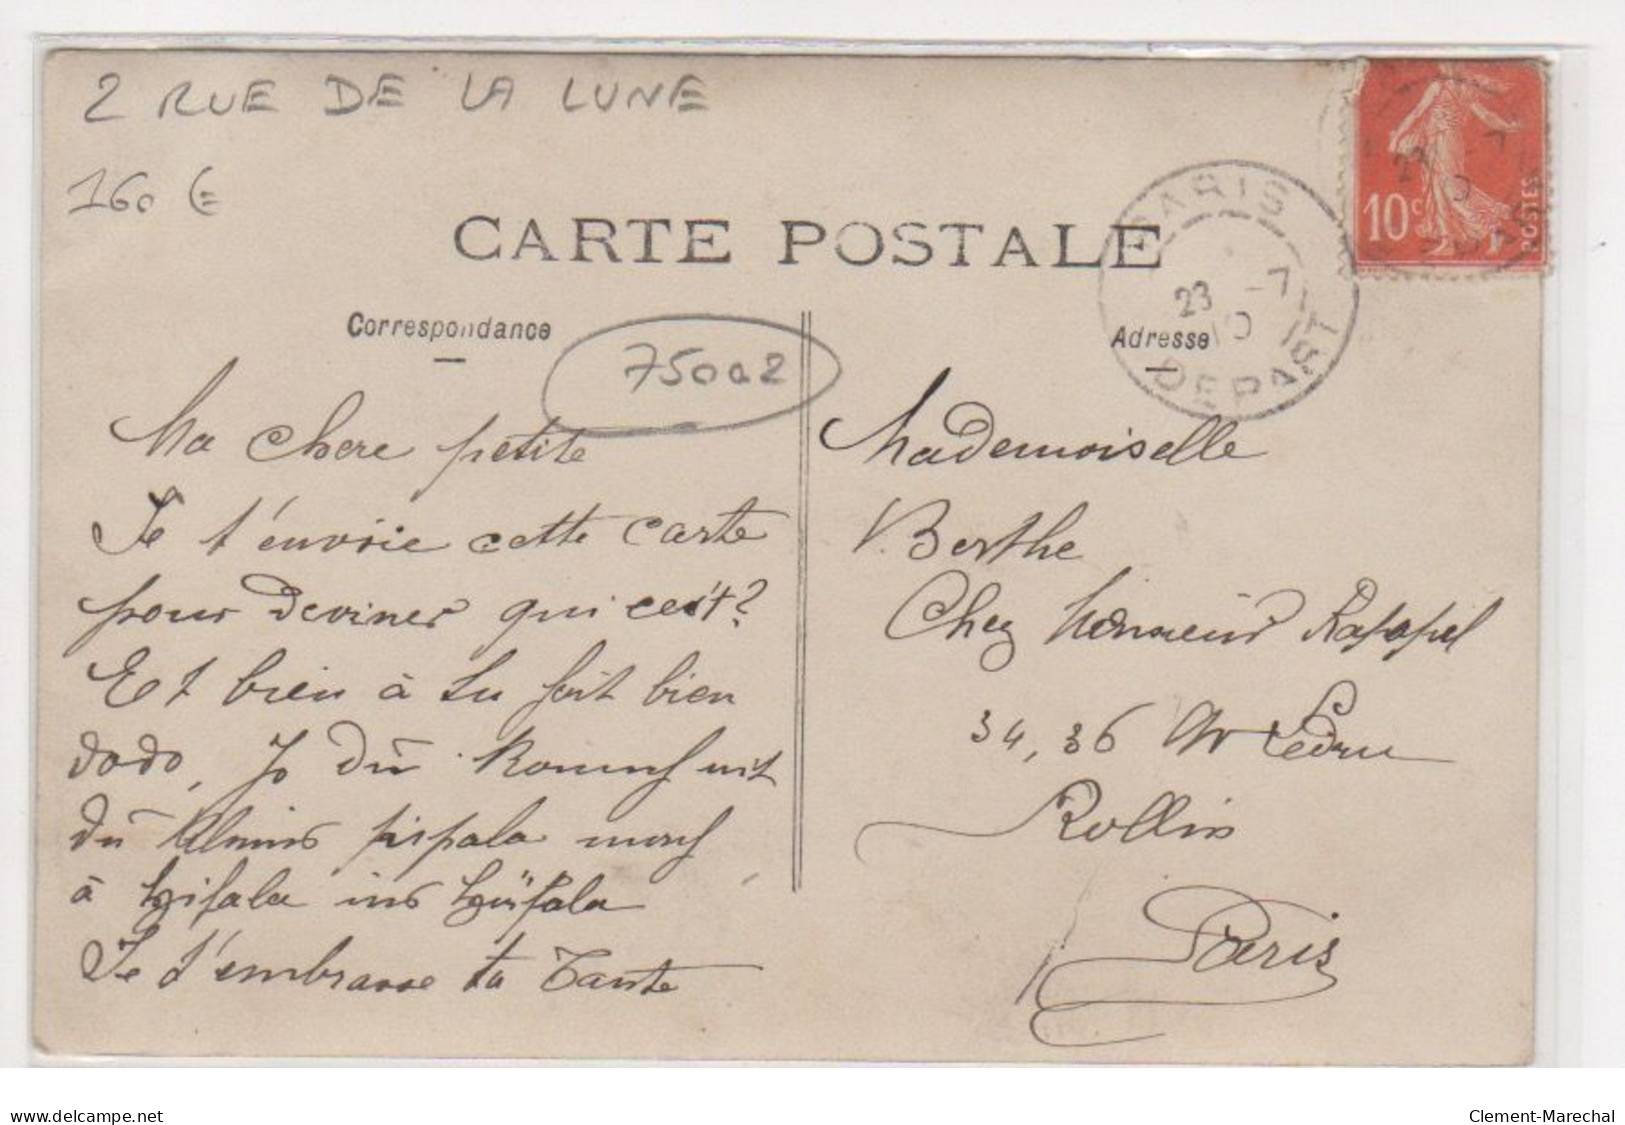 2 RUE DE LA LUNE
160 €
CARTE POSTALE
Correspondance
75002
Adresse
PARIS
23 -7
10
DEPART
10c
POSTES
Ma chere petite
Je t'envoie cette carte
pour deviner qui ces't?
Et bien à tu fait bien
dodo,
du pipala
à ins
Je t'embrasse ta Tante
Mademoiselle
Berthe
Chez Monsieur
34, 36 Av Ledru
Rollin
Paris
www.delcampe.net
Clement-Marechal